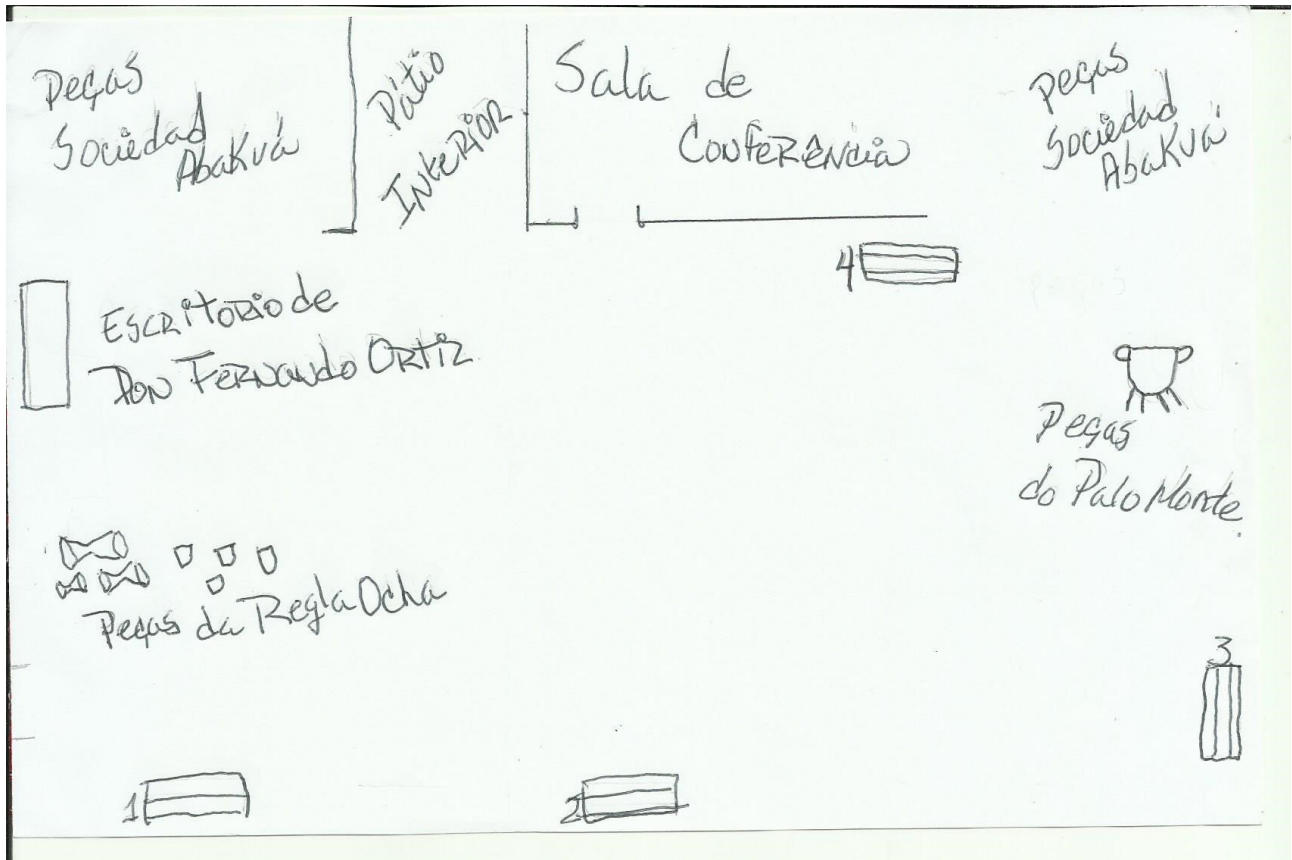 Peças
Sociedad
Abakuá
Pátio
INTERIOR
Sala de
CONFERÊNCIA
Peças
Sociedad
Abakuá
4
ESCRITORIO de
DON FERNANDO ORTIZ
Peças
do Palo Monte
Peças da Regla Ocha
3
1
2